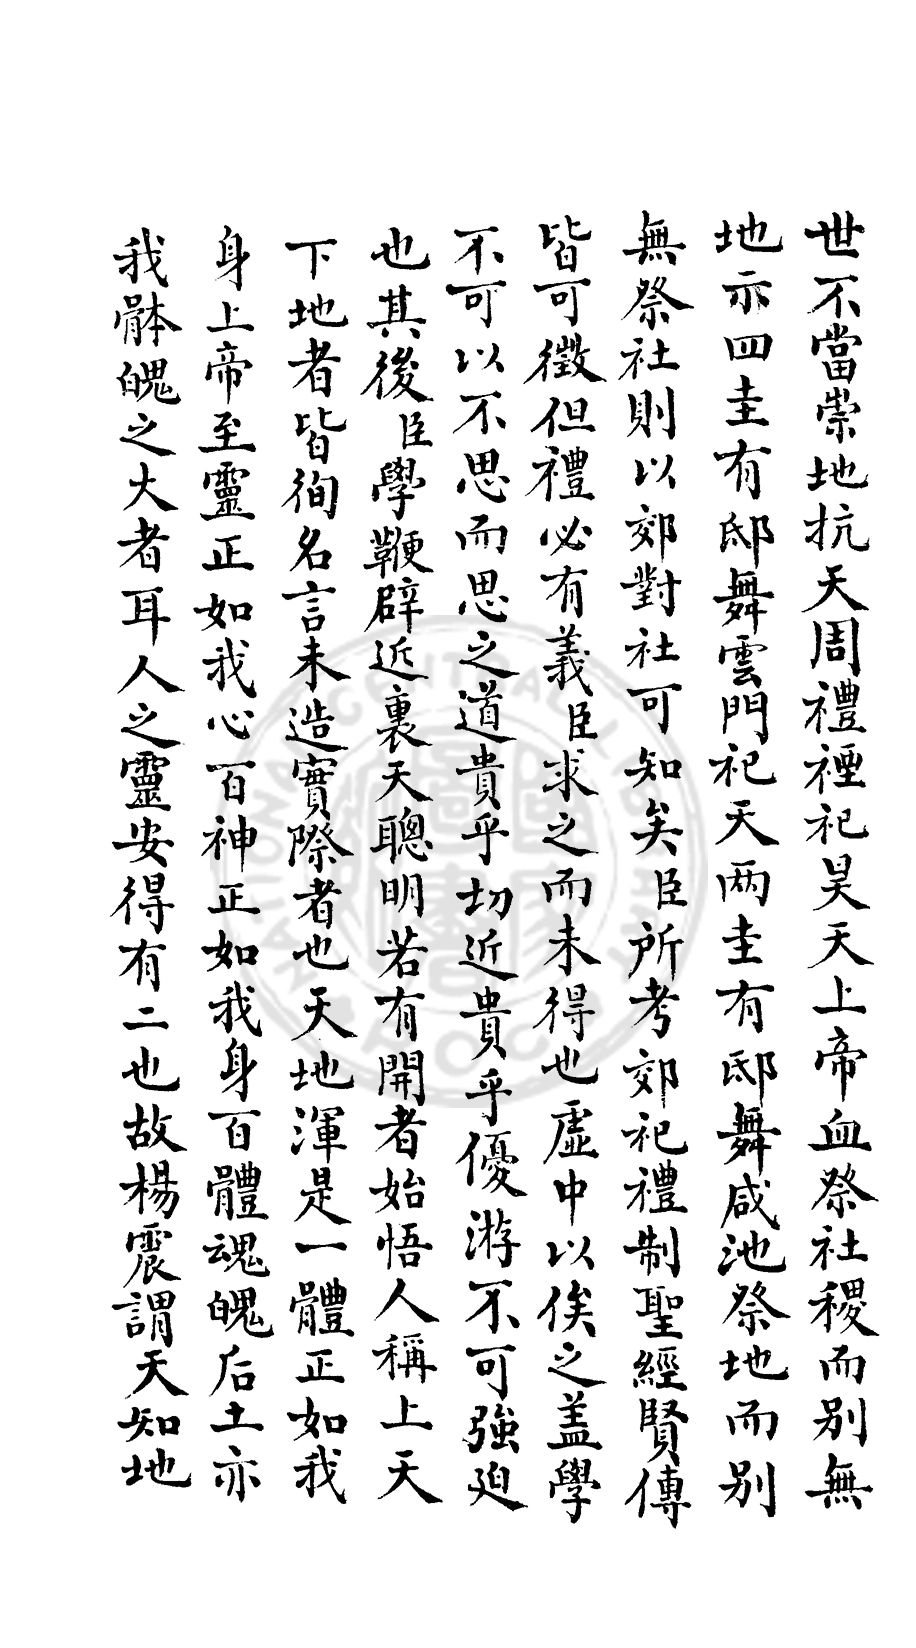 世不當崇地抗天周禮禋祀昊天上帝血祭社稷而別無
地示四圭有邸舞雲門祀天两圭有邸舞咸池祭地而別
無祭社則以郊對社可知矣臣所考郊祀禮制聖經賢傳
皆可徵但禮必有義臣求之而未得也虛中以俟之盖學
不可以不思而思之道貴乎切近貴乎優游不可強廹
也其後臣學鞭辟近裏天聰明若有開者始悟人稱上天
下地者皆徇名言未造實際者也天地渾是一體正如我
身上帝至靈正如我心百神正如我身百體魂魄后土亦
我骵魄之大者耳人之靈安得有二也故楊震謂天知地